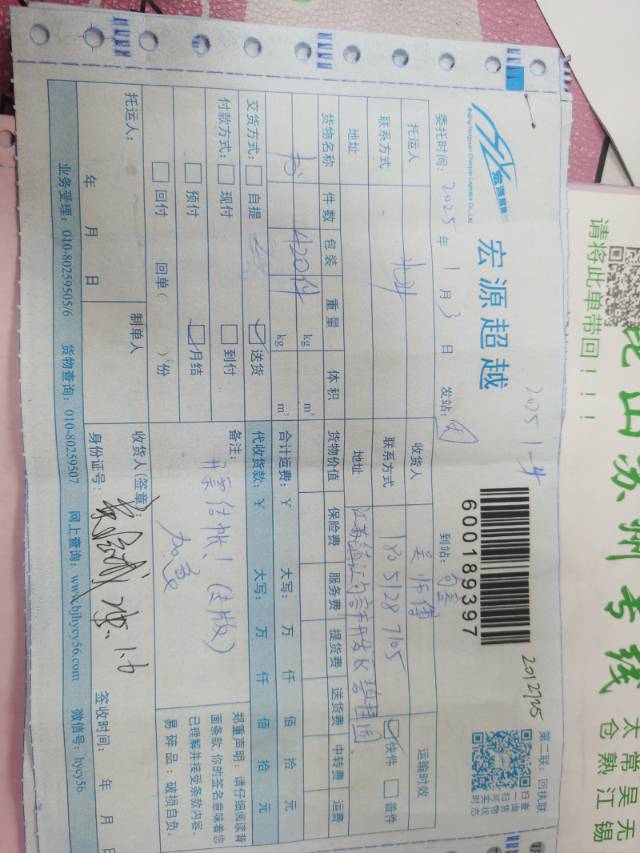 宏源超越
600189397
第二联：回执联
2025 1-4
2012725
委托时间：2025年1月3日
发站：
到站：
托运人
收货人
运输时效
联系方式
联系方式 18051287105
快件
普件
地址
地址
货物名称 件数 包装 重量 体积 货物价值 保险费 服务费 提货费 送货费 中转费 运费
书 420件 kg m³
kg m³
合计运费：￥ 大写： 万 仟 佰 拾 元
交货方式： 自提 送货
代收货款：￥ 大写： 万 仟 佰 拾 元
付款方式： 现付 到付
预付 月结
回付 回单（ ）份
备注：
加急
郑重声明：请仔细阅读背
面条款，你的签名意味着您
已理解并接受条款内容。
易碎品：破损自负。
托运人：
年 月 日
制单人
收货人(签章)
身份证号：
签收时间： 年 月 日
业务受理：010-80259505/6 货物查询：010-80259507 网上查询：www.bjhycy56.com 微信号：hycy56
请将此单带回！！！
昆山苏州专线
太仓
常熟
吴江
无锡